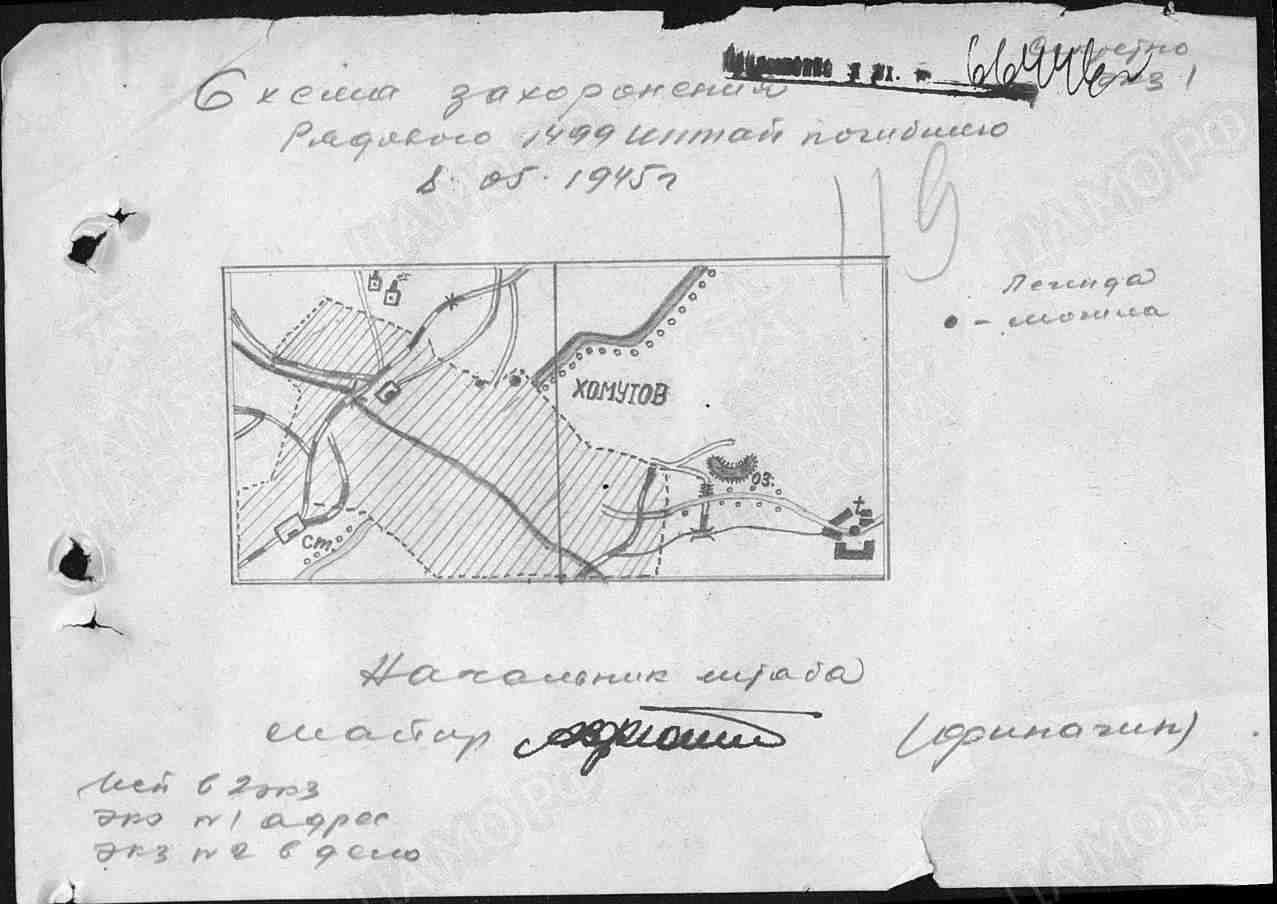 Секретно
экз 1
66446
Схема захоронения
Рядового 1499 иптап погибшего
8. 05. 1945г
119
Легенда
- могила
ХОМУТОВ
оз.
Ст.
Начальник штаба
майор
исп в 2 экз
экз №1 адрес
экз №2 в дело
ЦАМО РФ